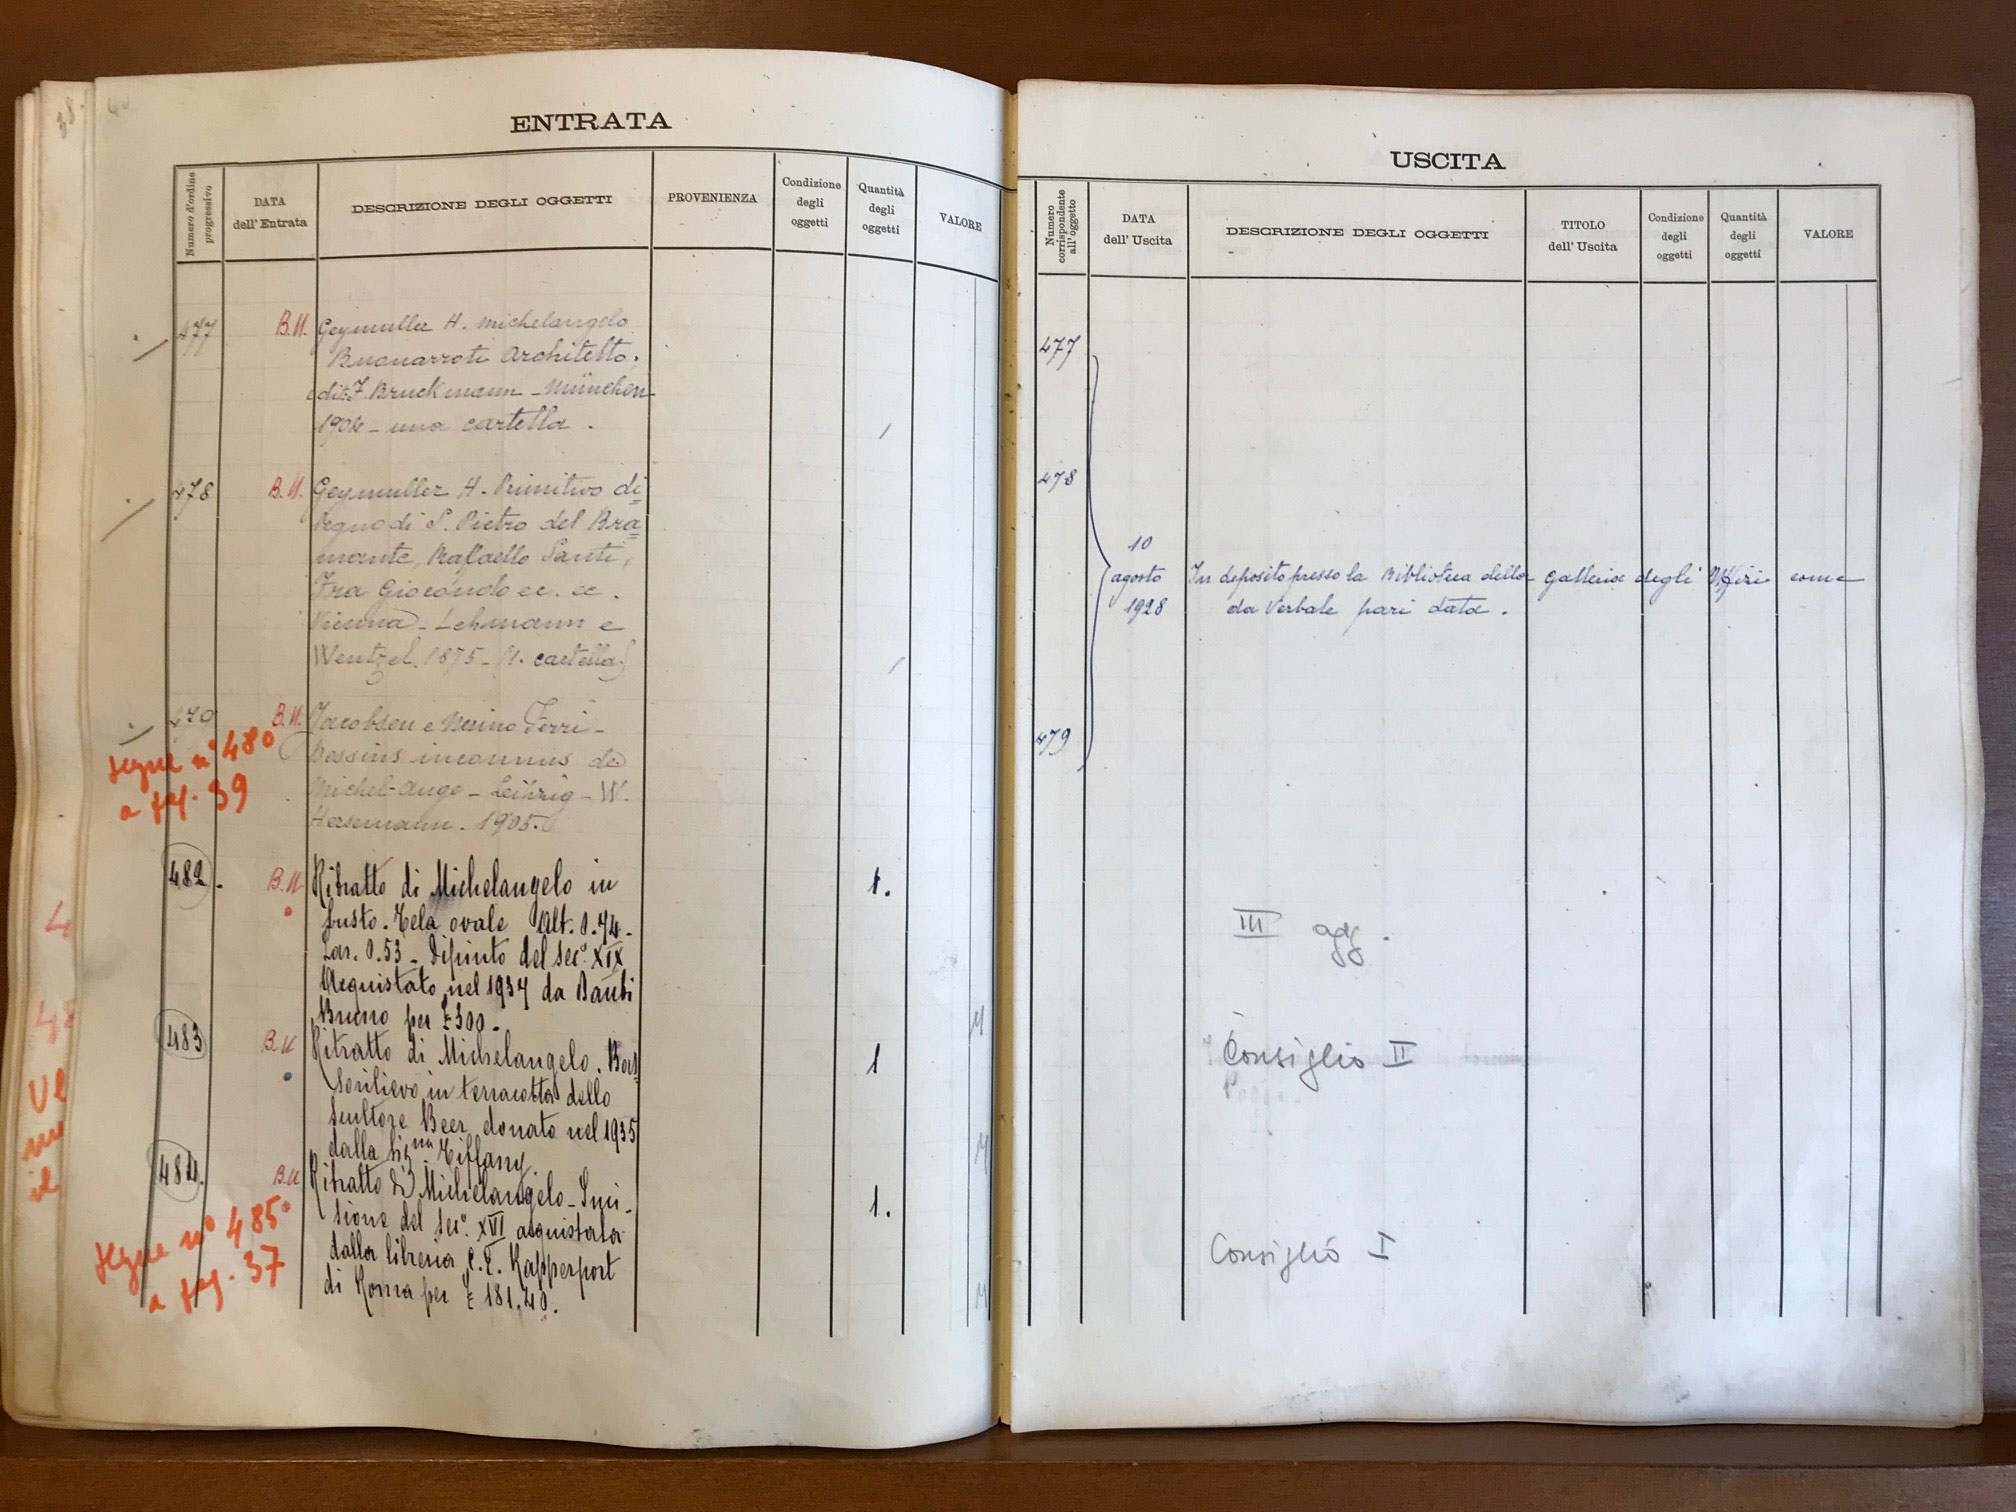 38.
40
ENTRATA
Numero d'ordine progressivo
DATA dell' Entrata
DESCRIZIONE DEGLI OGGETTI
PROVENIENZA
Condizione degli oggetti
Quantità degli oggetti
VALORE
477 B.U. Geymuller H. Michelangelo
Buonarroti Architetto.
F. Bruckmann - München
1904 - una cartella.
478 B.U. Geymuller H. Primitivo di=
segno di S. Pietro del Bra=
mante, Raffaello Santi,
Fra Giocondo ec. ec.
Vienna - Lehmann e
Wentzel. 1875 - (1. cartella)
479 B.U. Jacobsen e Nerino Ferri -
Dessins inconnus de
Michel-Ange - Leipzig - W.
1905.
segue n° 480
a pag. 39
482. B.U. Ritratto di Michelangelo in 1.
busto. Tela ovale Alt. 0.74 -
Lar. 0.53 - Dipinto del sec° XIX
Acquistato nel 1934 da
Bruno per £ 300 -
483 B.U. Ritratto di Michelangelo. Bas 1
sorilievo in terracotta dello
scultore Beer donato nel 1935
dalla Sig.na Tiffany.
484. B.U. Ritratto di Michelangelo - Inci - 1.
sione del sec° XVI acquistata
dalla libreria C. E. Rapperport
di Roma per £ 181.40.
segue n° 485
a pag. 37
USCITA
Numero corrispondente all'oggetto
DATA dell' Uscita
DESCRIZIONE DEGLI OGGETTI
TITOLO dell' Uscita
Condizione degli oggetti
Quantità degli oggetti
VALORE
477
478
10
agosto In deposito presso la Biblioteca della Galleria degli Uffizi come
1928 da Verbale pari data.
479
III agg.
Consiglio II
Consiglio I